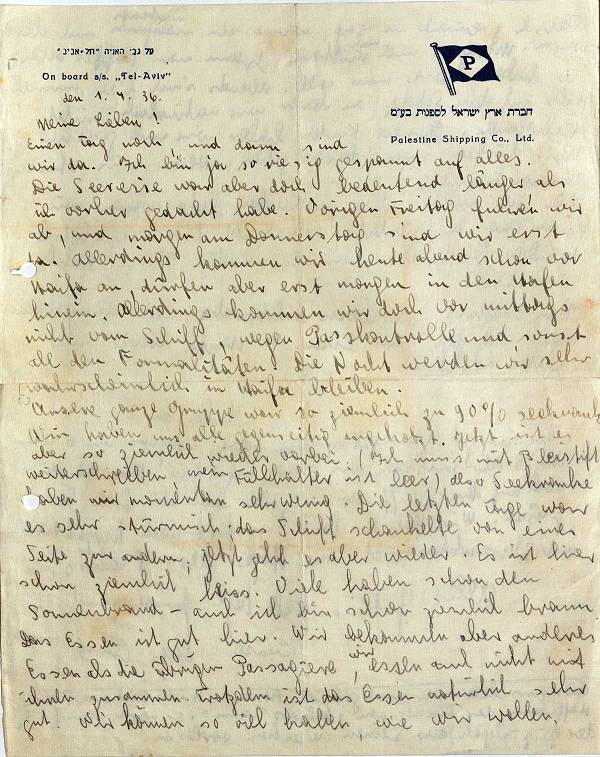 על גבי האניה "תל-אביב"
On board s/s. „Tel-Aviv"
P
חברת ארץ ישראל לספנות בע"מ
Palestine Shipping Co., Ltd.
den 1. 4. 36.
Meine Lieben!
Einen Tag noch, und dann sind
wir da. Ich bin ja so riesig gespannt auf alles.
Die Seereise war aber doch bedeutend länger als
ich vorher gedacht habe. Vorigen Freitag fuhren wir
ab, und morgen am Donnerstag sind wir erst
da. Allerdings kommen wir heute abend schon vor
Haifa an, dürfen aber erst morgen in den Hafen
hinein. Allerdings kommen wir doch vor mittags
nicht vom Schiff, wegen Passkontrolle und sonst
all den Formalitäten. Die Nacht werden wir sehr
wahrscheinlich in Haifa bleiben.
Unsere ganze Gruppe war so ziemlich zu 90% seekrank
Wir haben uns alle gegenseitig angekotzt. Jetzt ist es
aber so ziemlich wieder vorbei (Ich muss mit Bleistift
weiterschreiben, mein Füllhalter ist leer) also Seekranke
haben wir momentan sehr wenig. Die letzten Tage war
es sehr stürmisch, das Schiff schaukelte von einer
Seite zur andern, jetzt geht es aber wieder. Es ist hier
schon ziemlich heiss. Viele haben schon den
Sonnenbrand – auch ich bin schon ziemlich braun
Das Essen ist gut hier. Wir bekommen aber anderes
Essen als die übrigen Passagiere, wir essen auch nicht mit
ihnen zusammen. Trotzdem ist das Essen natürlich sehr
gut. Wir können so viel haben, wie wir wollen.